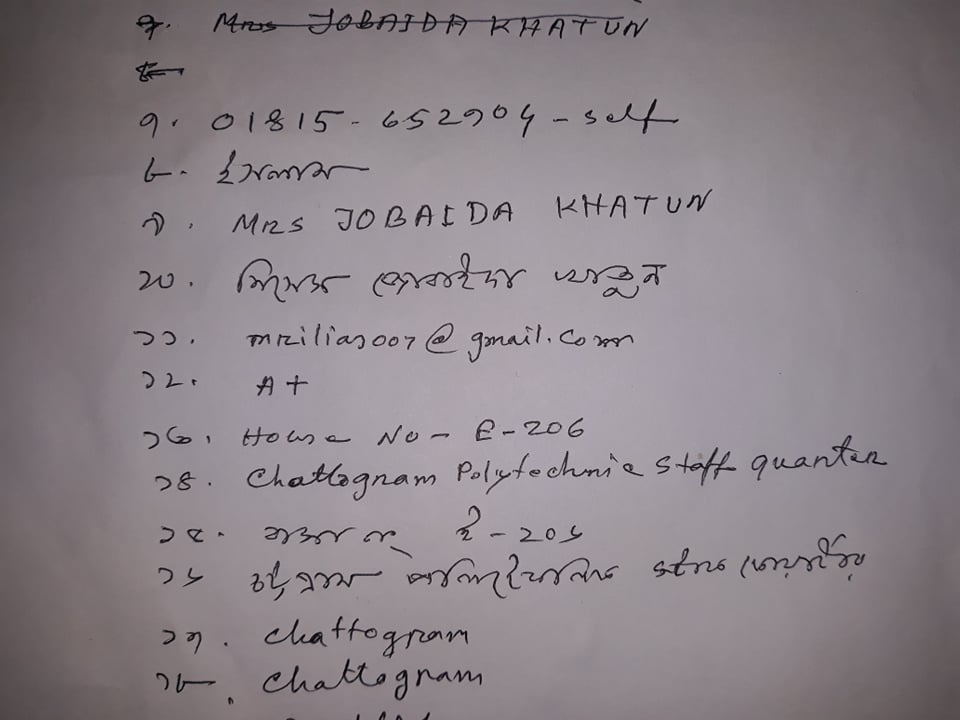 ৭. Mrs JOBAIDA KHATUN
৭. 01815-652904-self
৮. ইসলাম
৯. Mrs JOBAIDA KHATUN
১০. মিসেস জোবাইদা খাতুন
১১. @gmail.com
১২. A+
১৩. House No- E-206
১৪. Chattogram Polytechnic Staff quarter
১৫. বাসা নং ই-২০৬
১৬ চট্টগ্রাম পলিটেকনিক স্টাফ কোয়ার্টার
১৭. Chattogram
১৮. Chattogram